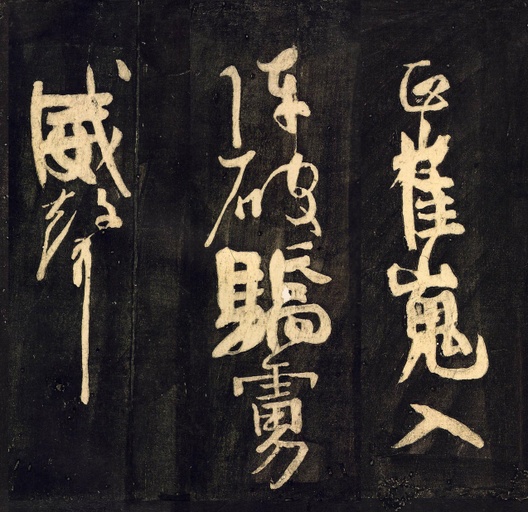 正崔嵬入
陣破驕虜
威聲